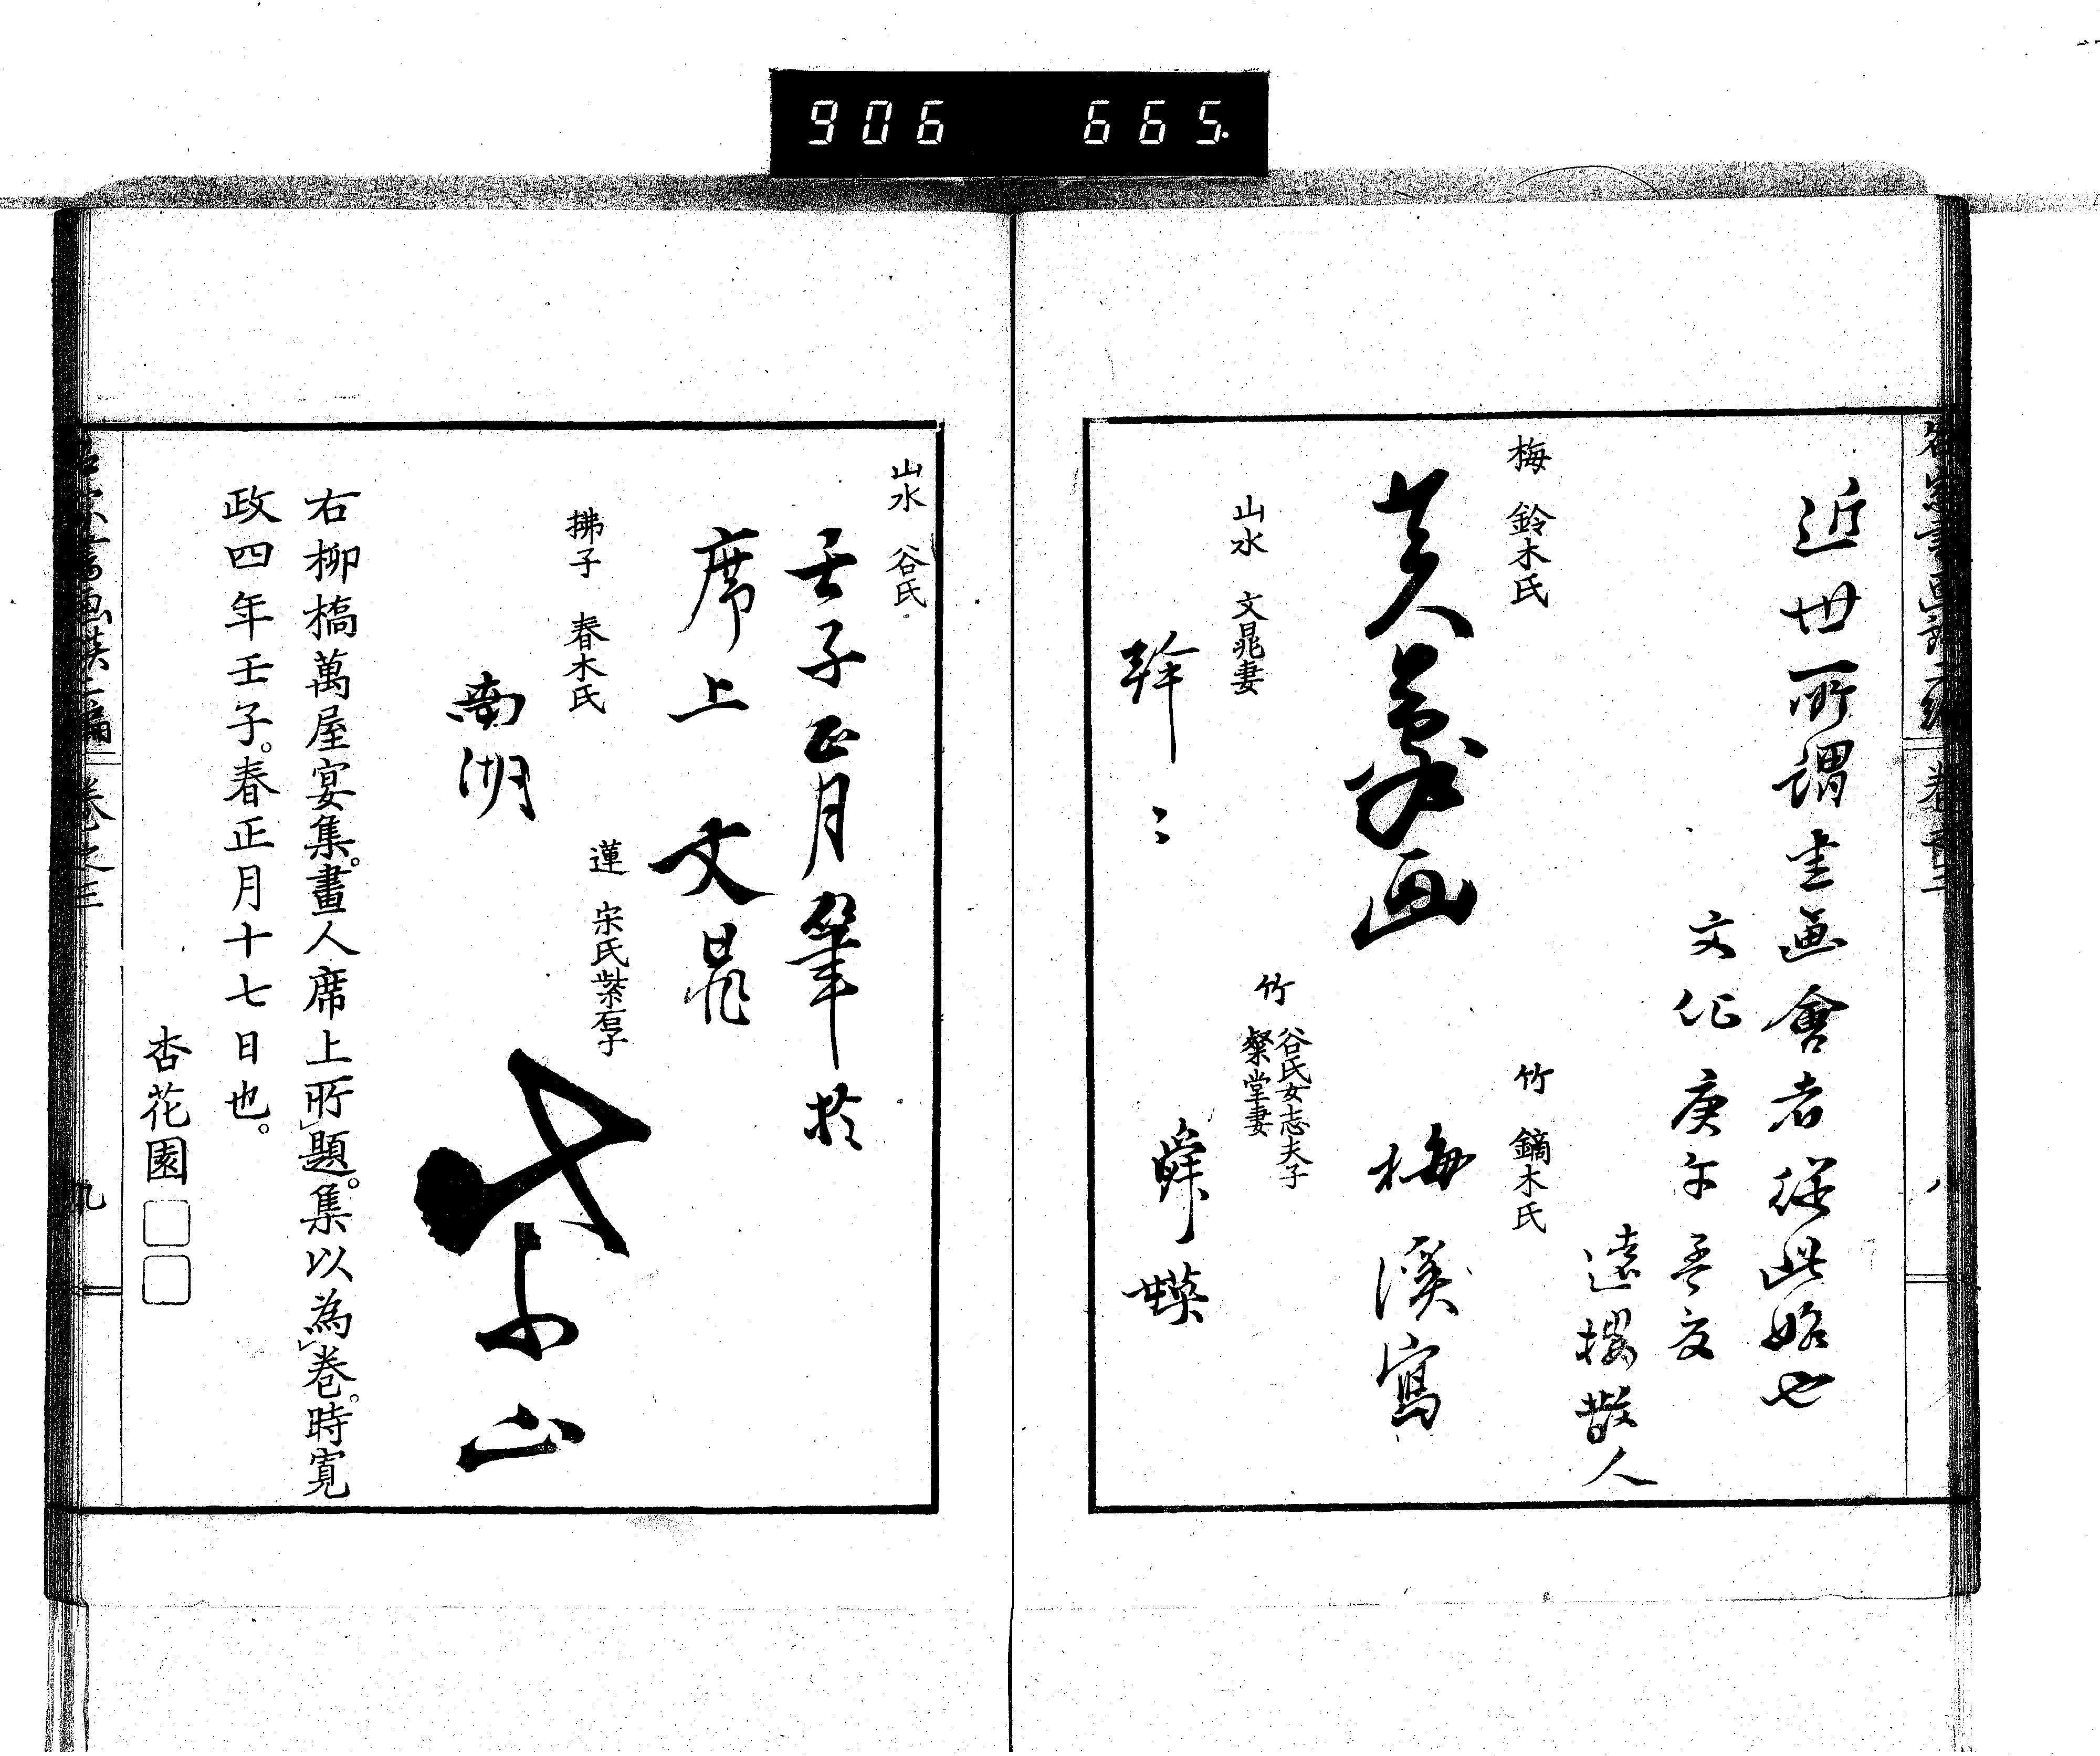 906 665.
近世所謂書画會者從此始也
文化庚午孟夏
遠櫻散人
梅 鈴木氏
芙蓉画
竹 鏑木氏
梅溪寫
山水 文晁妻
幹々
竹 谷氏女志夫子
粲堂妻
舜媖
卷之三
八
山水 谷氏
壬子正月筆於
席上 文晁
拂子 春木氏
南湖
蓮 宋氏紫石子
紫山
右柳橋萬屋宴集。畫人席上所」題。集以為」卷。時寬
政四年壬子。春正月十七日也。
杏花園□□
卷之三
九